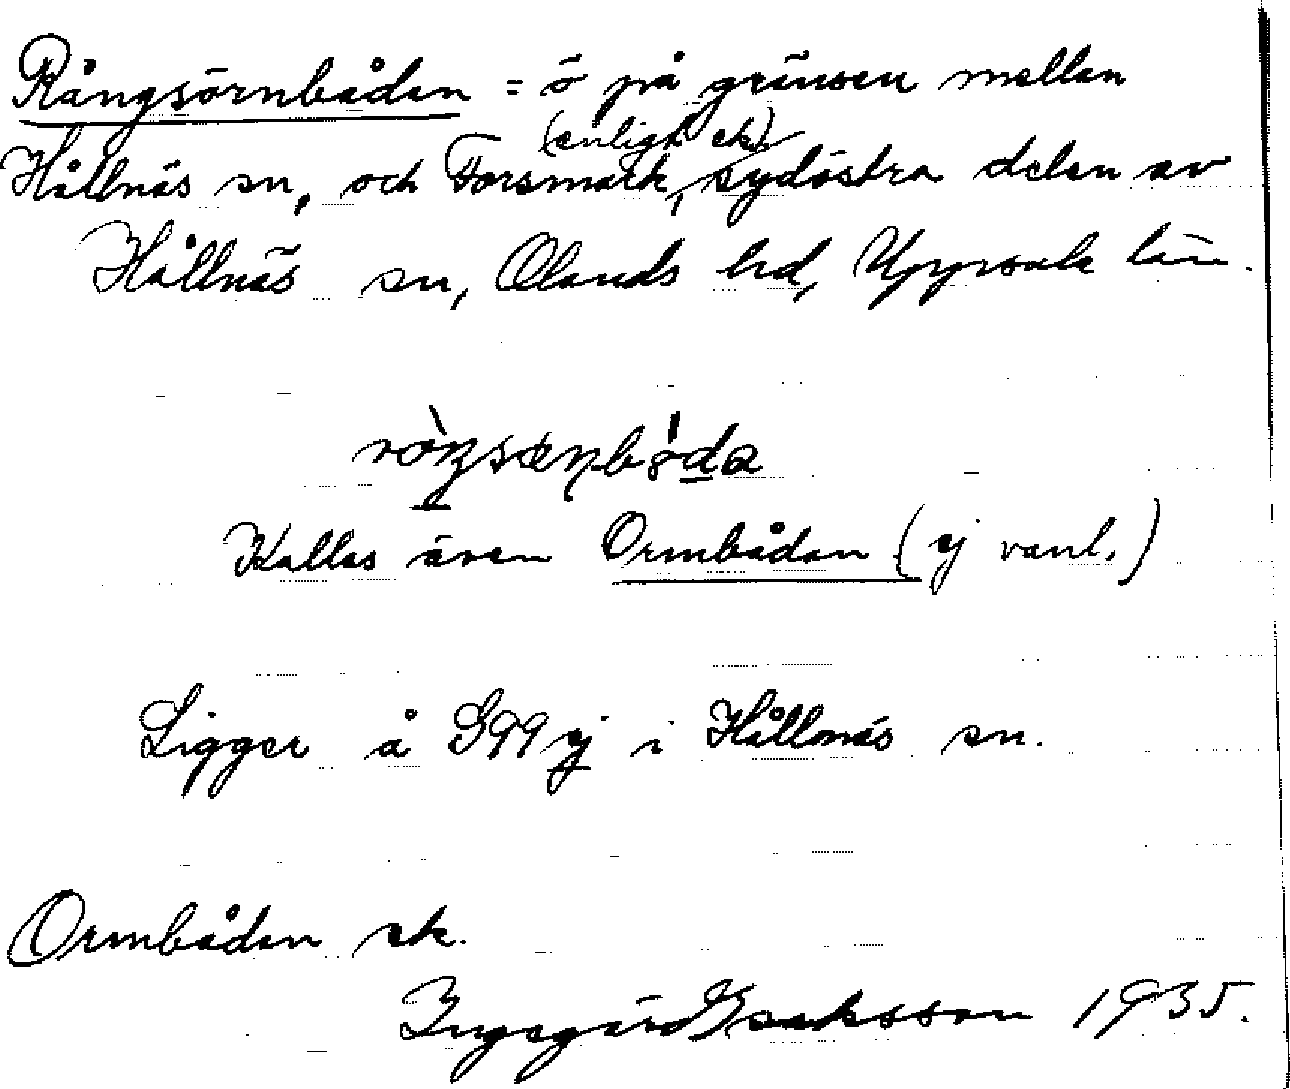 Rångsörnbådan = ö på gränsen mellan
(enligt ek)
Hållnäs sn, och Forsmark, sydöstra delen av
Hållnäs sn, Olands hd, Uppsala län.
Kallas även Ormbådan (ej vanl.)
Ligger å S99 ej i Hållnäs sn.
Ormbådan ek.
Ingegärd Isaksson 1935.